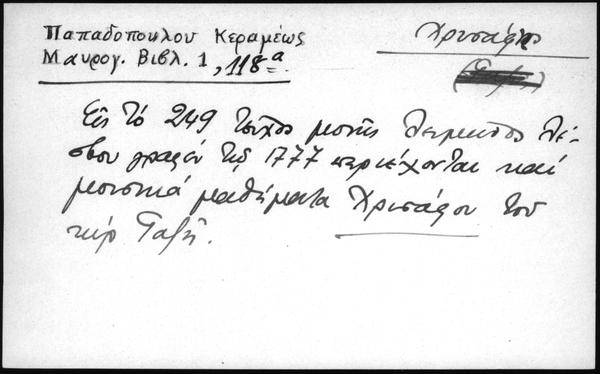 Παπαδοπουλου Κεραμέως
Μαυρογ. Βιβλ. 1, 118α
Χρυσάφης
Εἰς τό 249 τεῦχος μονῆς Λειμῶνος Λέ-
σβου γραφέν τῷ 1777 περιέχονται καί
μουσικά μαθήματα Χρυσάφου τοῦ
κύρ